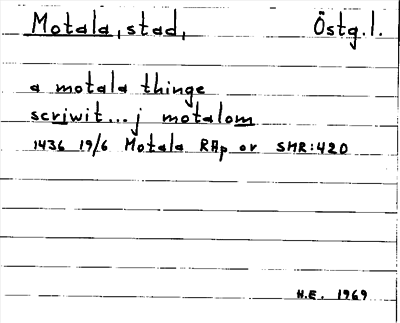 Motala, stad, Östg.l.
a motala thinge
scriwit...j motalom
1436 19/6 Motala RAp or SMR:420
H.E. 1969